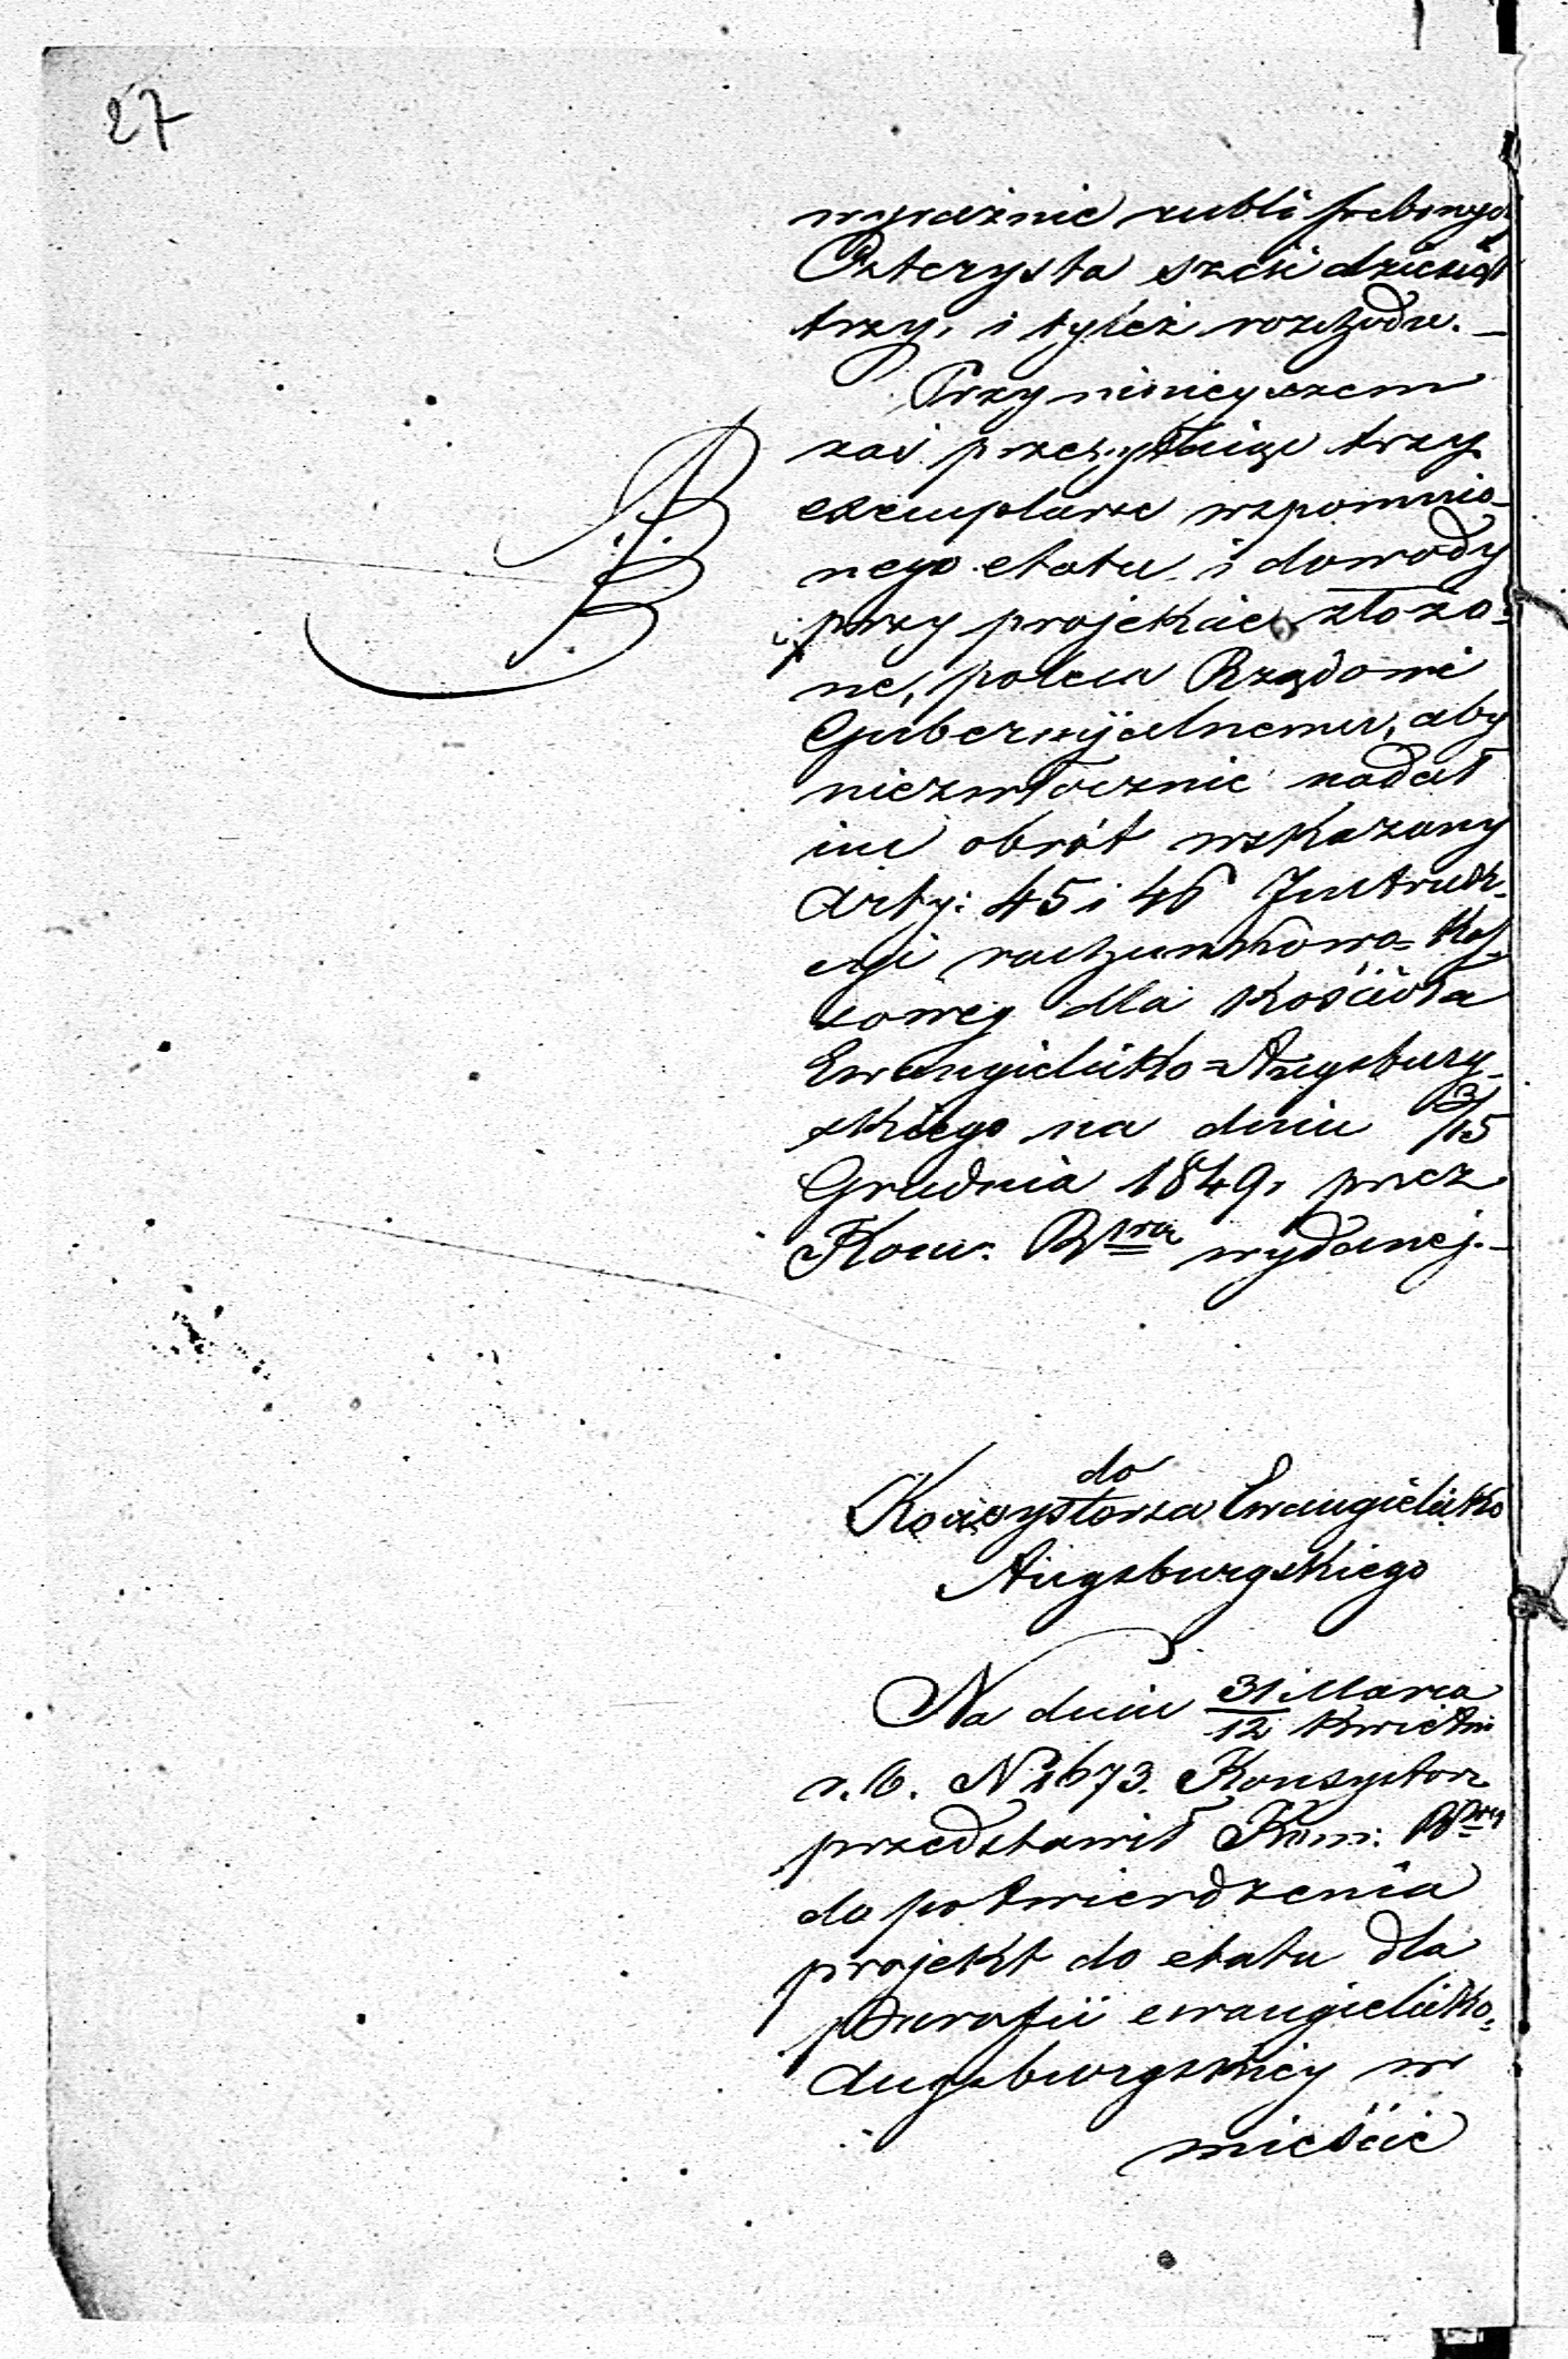 27
wyraźnie rubli srebrnych
Czterysta sześćdziesiąt
trzy, i tyleż rozchodu. —
Przy ninieyszem
zaś przesyłając trzy
exemplarze wspomnio-
nego etatu i dowody
przy projekcie złożo-
ne, poleca Rządowi
Gubernijalnemu, aby
niezwłocznie nadał
im obrót wskazany
Arty: 45 i 46 Instruk-
cyi rachunkowo=Kas-
sowey dla Kościoła
Ewangielicko=Augsburg-
skiego na dniu 3/15
Grudnia 1849, przez
Kom. Rz. wydanej. —
do
Konsystorza Ewangielicko
Augsburgskiego
Na dniu 31 Marca
12 Kwietnia
r. b. N 1673. Konsystorz
przedstawił Kom: Rz.
do potwierdzenia
projekt do etatu dla
Parafii ewangielicko=
Augsburgskiey w
mieście